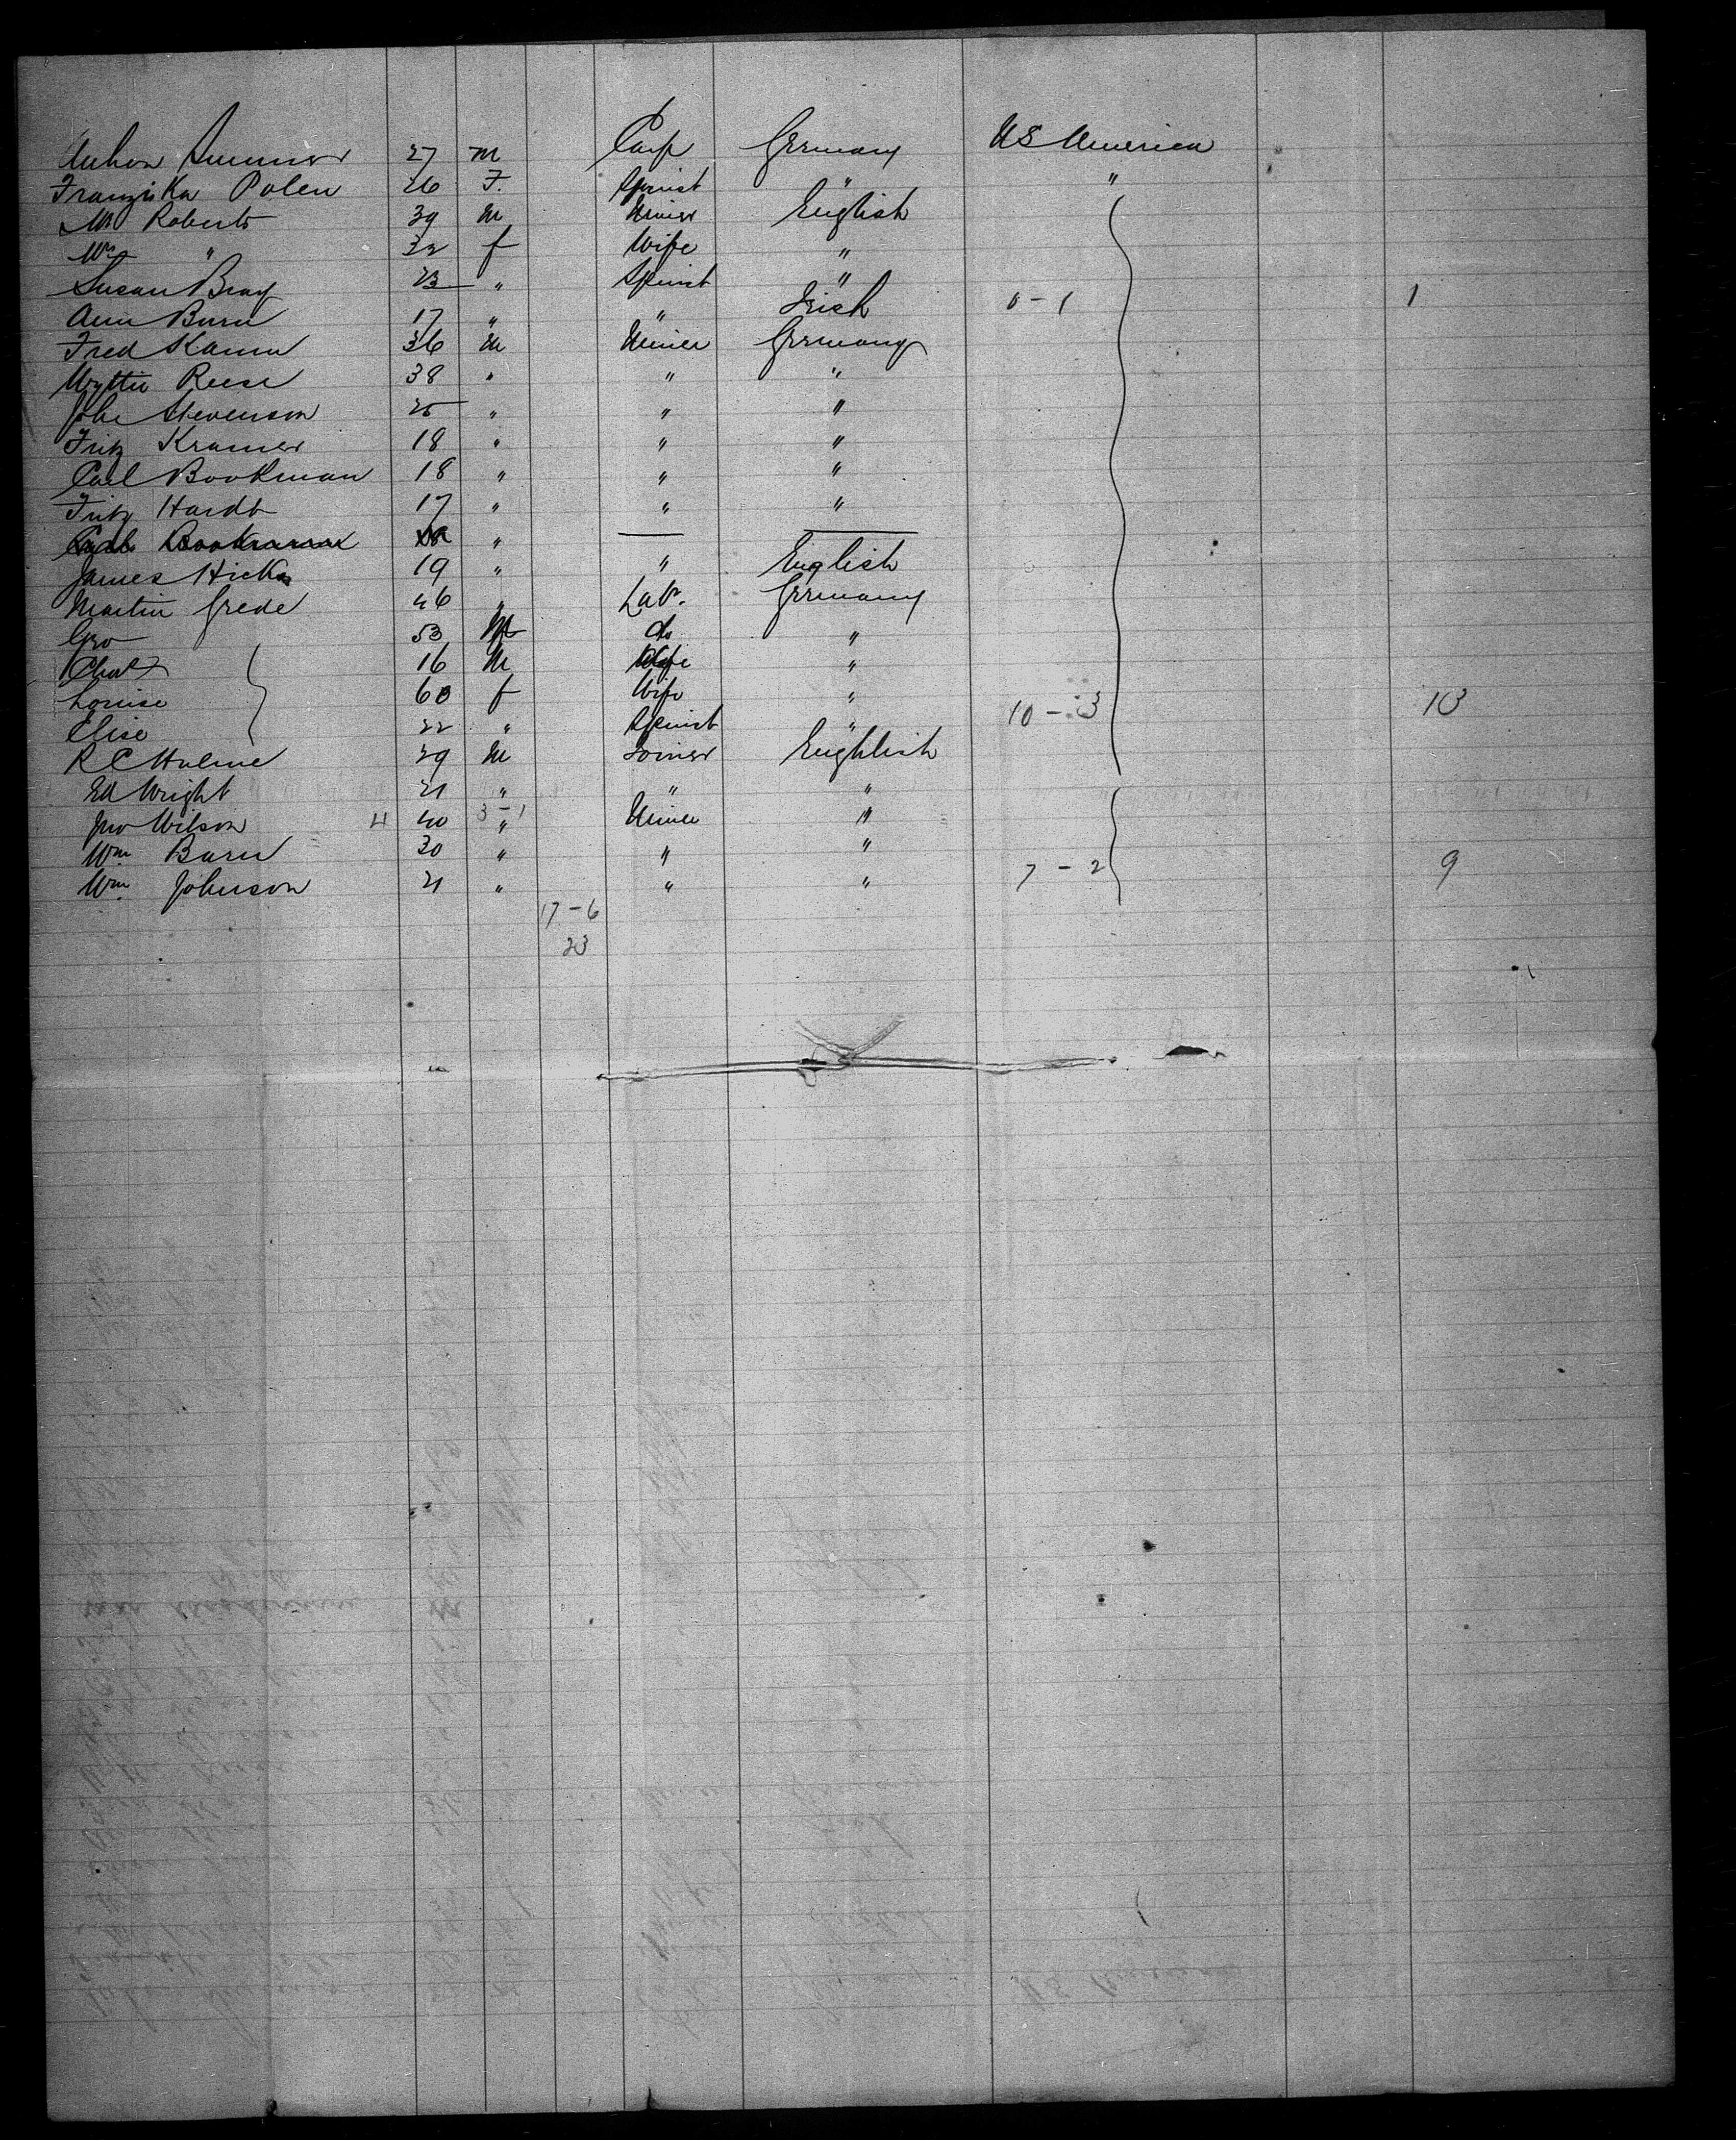 Anton Summer 27 M Carp Germany US America
Franziska Polen 26 F. Spinst " "
Mr Roberts 39 M Miner English
Mrs " 32 f Wife "
Susan Bray 23 " Spinst "
Ann Burn 17 " " Irish 0 - 1 1
Fred Kamm 36 M Miner Germany
Reese 38 " " "
John Stevenson 25 " " "
Fritz Kramer 18 " " "
Carl Bookman 18 " " "
Fritz Hardt 17 " " "
Carl Bookman 18 " — —
James Hicks 19 " " English
Martin Grede 46 " Labr. Germany
Geo 53 M do "
Chas 16 M "
Louise 60 f Wife "
Elise 22 " Spinst " 10 - 3 13
R C Hulme 29 M Joiner Enghlish
Ed Wright 21 " " "
Jno Wilson 4 40 3 - 1 " Miner "
Wm Burn 30 " " "
Wm Johnson 21 " " " 7 - 2 9
17 - 6
23